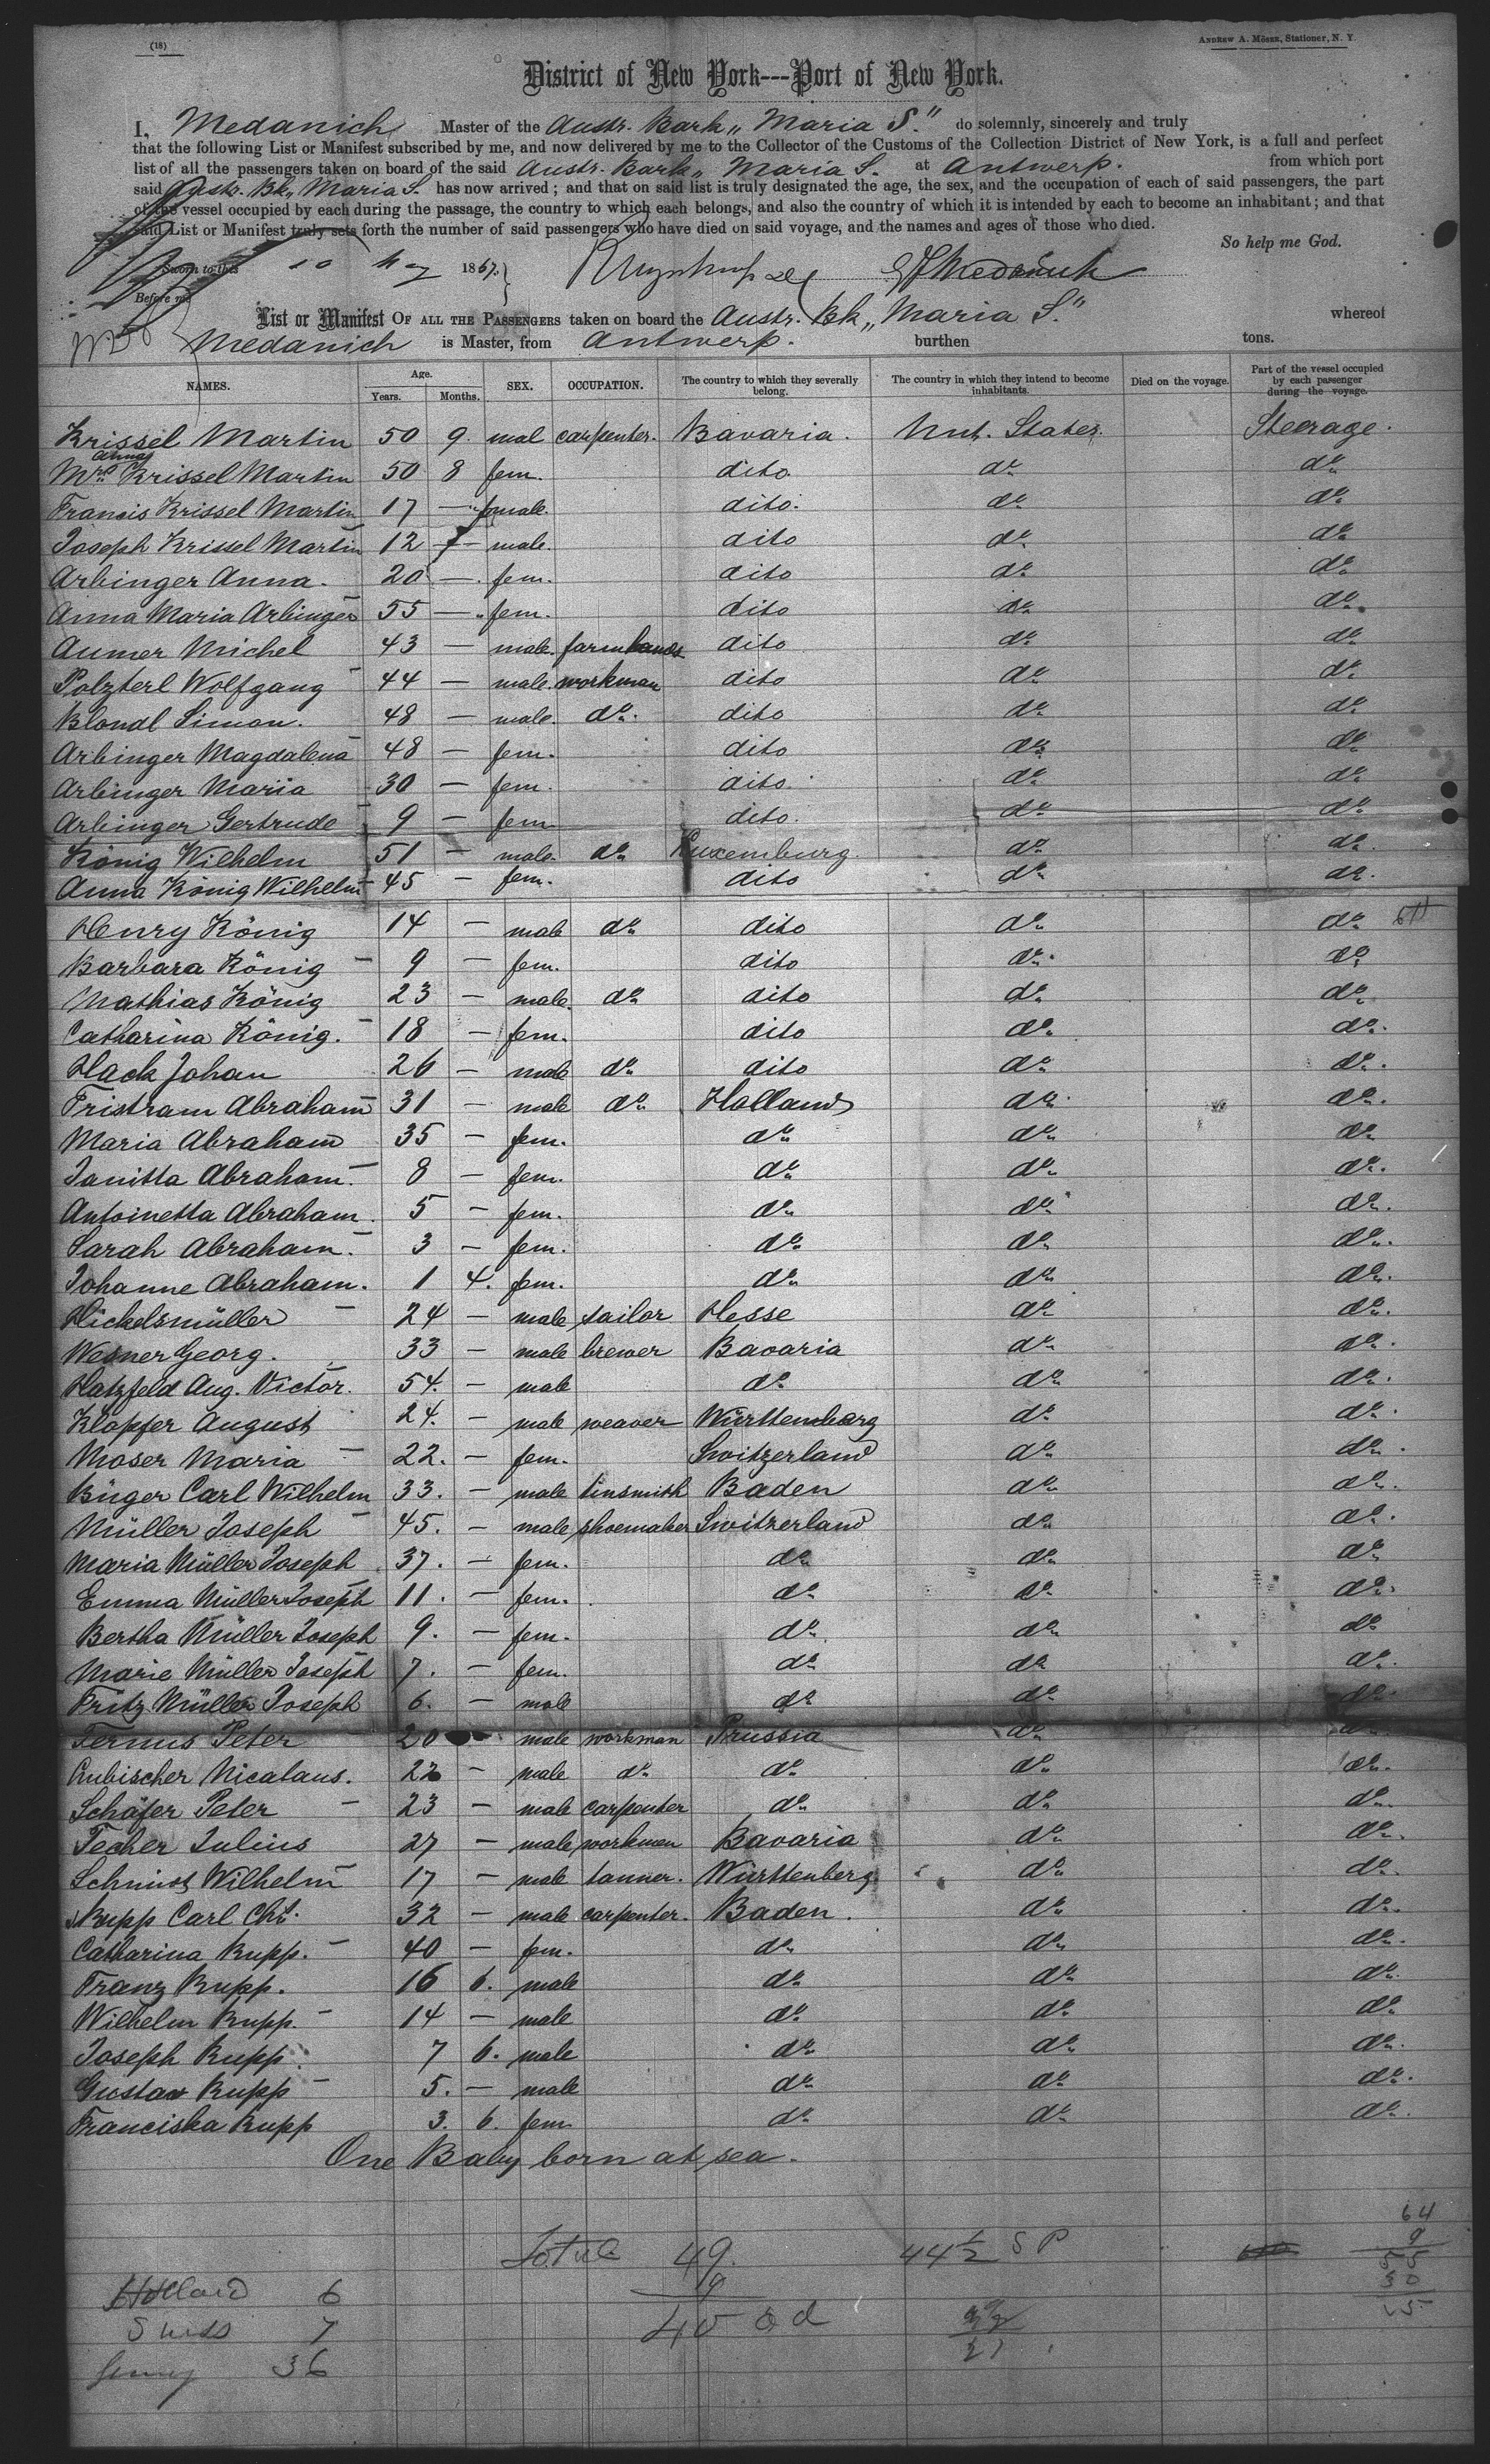 (18)
ANDREW A. MÖSER, Stationer, N. Y.
District of New York---Port of New York.
I, Medanich Master of the Austr. Bark „ Maria S." do solemnly, sincerely and truly
that the following List or Manifest subscribed by me, and now delivered by me to the Collector of the Customs of the Collection District of New York, is a full and perfect
list of all the passengers taken on board of the said Austr. Bark „ Maria S. at Antwerp. from which port
said Austr. Bk „ Maria S. has now arrived; and that on said list is truly designated the age, the sex, and the occupation of each of said passengers, the part
of the vessel occupied by each during the passage, the country to which each belongs, and also the country of which it is intended by each to become an inhabitant; and that
said List or Manifest truly sets forth the number of said passengers who have died on said voyage, and the names and ages of those who died.
So help me God.
Sworn to this 10 May 1867.
Before me
List or Manifest OF ALL THE PASSENGERS taken on board the Austr. Bk „ Maria S." whereof
Medanich is Master, from Antwerp. burthen tons.
NAMES. Age. Years. Months. SEX. OCCUPATION. The country to which they severally belong. The country in which they intend to become inhabitants. Died on the voyage. Part of the vessel occupied by each passenger during the voyage.
Krissel Martin 50 9. mal carpenter. Bavaria. Unt. States. Steerage.
Mrs. Anna Krissel Martin 50 8 fem. dito do do
Francis Krissel Martin 17 — female. dito. do do
Joseph Krissel Martin 12 — male. dito do do
Arbinger Anna. 20 — fem. dito do do
Anna Maria Arbinger 55 — fem. dito do do
Aumer Michel 43 — male. farmhands dito do do
Polzterl Wolfgang 44 — male. workman dito do do
Blondl Simon. 48 — male do. dito do do
Arbinger Magdalena 48 — fem. dito do do
Arbinger Maria 30 — fem. dito. do do
Arbinger Gertrude 9 — fem dito. do do
König Wilhelm 51 — male. do Luxemburg do do.
Anna König Wilhelm 45 — fem. dito do do.
Henry König 14 — male do dito do do
Barbara König 9 — fem. dito do. do
Mathias König 23 — male. do dito do do
Catharina König. 18 — fem. dito do do.
Hack Johan 26 — male do dito do do.
Tristram Abraham 31 — male do Holland do do.
Maria Abraham 35 — fem. do do do
Janitta Abraham. 8 — fem. do do do.
Antoinetta Abraham. 5 — fem. do do do.
Sarah Abraham. 3 — fem. do do do.
Johanne Abraham. 1 4. fem. do do do.
Hickelsmüller 24 — male sailor Hesse do do.
Wesner Georg. 33 — male brewer Bavaria do do.
Hatzfeld Aug. Victor. 54. — male do do do.
Klopfer August 24. — male weaver Württemberg do do.
Moser Maria 22. — fem. Switzerland do do.
Büger Carl Wilhelm 33. — male tinsmith Baden do do.
Müller Joseph 45. — male shoemaker Switzerland do do.
Maria Müller Joseph 37. — fem. do do do
Emma Müller Joseph 11. — fem. do do do.
Bertha Müller Joseph 9. — fem. do do do
Marie Müller Joseph 7. — fem. do do do.
Fritz Müller Joseph 6. — male do do do.
Fernus Peter 20 male workman Prussia do do
Aubischer Nicalaus. 22 — male do do do do.
Schäfer Peter 23 — male carpenter do do do.
Techer Julius 27 — male workmen Bavaria do do.
Schmidt Wilhelm 17 — male tanner. Württenberg. do do.
Rupp Carl Chr. 32 — male carpenter. Baden. do do.
Catharina Rupp. 40 — fem. do do do.
Franz Rupp. 16 6. male do do do.
Wilhelm Rupp. 14 — male do do do
Joseph Rupp. 7 6. male do do do.
Gustav Rupp 5. — male do do do.
Franciska Rupp 3. 6. fem. do do do.
One Baby born at sea.
Total 49. 44½ S P
9
40 ad
Holland 6
Swiss 7
Germy 36
64
9
55
30
25